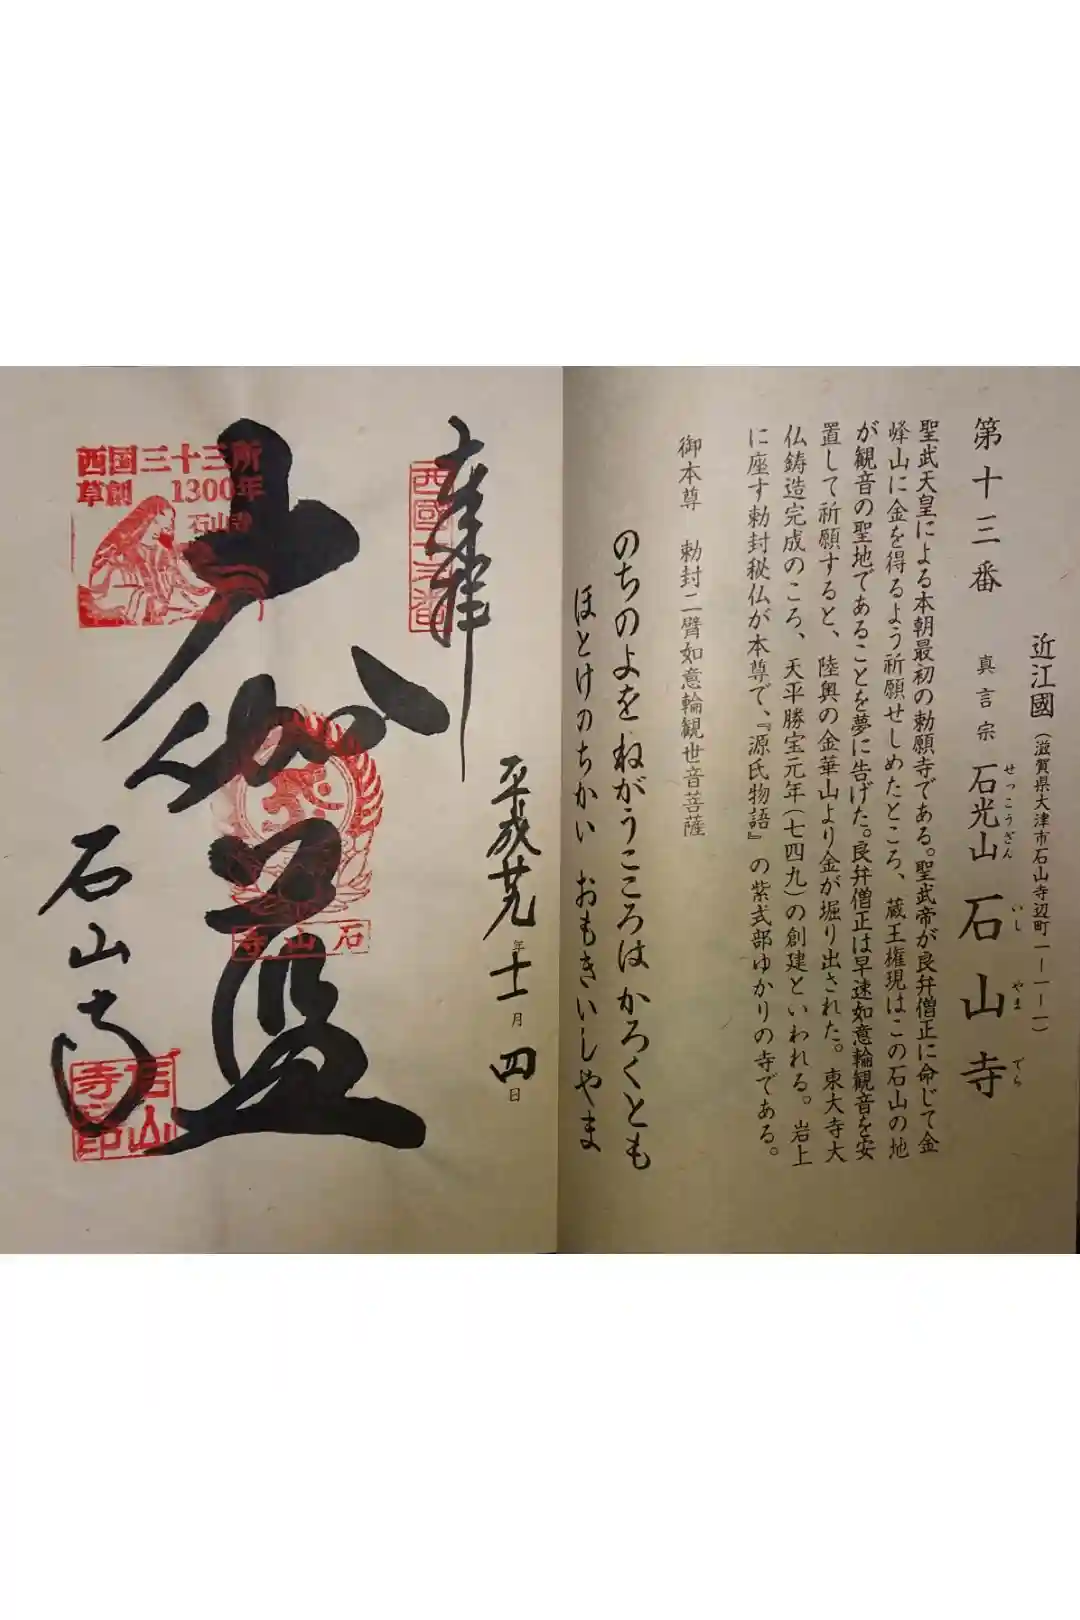 近江國（滋賀県大津市石山寺辺町一ー一ー一）
第十三番 真言宗 石光山 石山寺
せっこうざん いし やま でら
聖武天皇による本朝最初の勅願寺である。聖武帝が良弁僧正に命じて金
峰山に金を得るよう祈願せしめたところ、蔵王権現はこの石山の地
が観音の聖地であることを夢に告げた。良弁僧正は早速如意輪観音を安
置して祈願すると、陸奥の金華山より金が堀り出された。東大寺大
仏鋳造完成のころ、天平勝宝元年（七四九）の創建といわれる。岩上
に座す勅封秘仏が本尊で、『源氏物語』の紫式部ゆかりの寺である。
御本尊 勅封二臂如意輪観世音菩薩
のちのよを ねがうこころは かろくとも
ほとけのちかい おもきいしやま
平成廿九年十一月四日
奉拝
西國十三番
大伽藍
石山寺
西国三十三所
草創 1300年
石山寺
石山寺
石山寺印